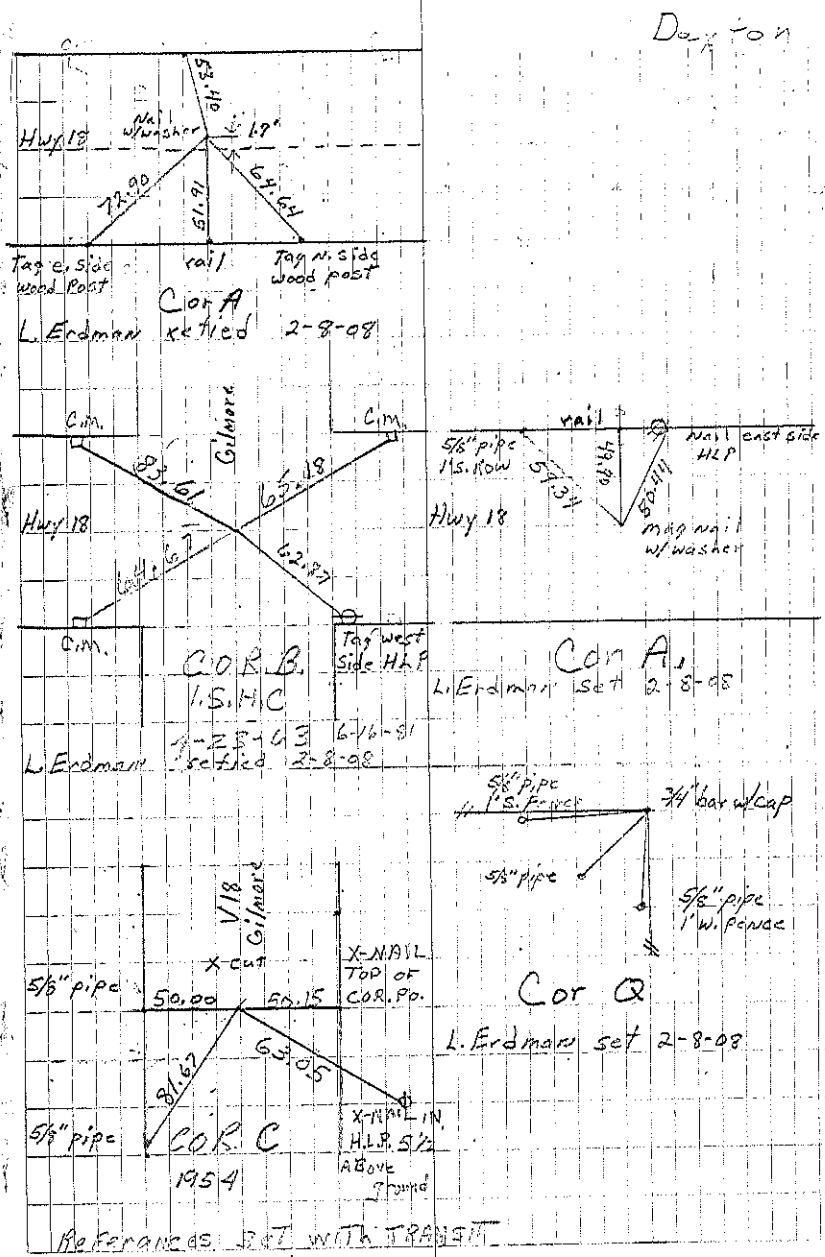 Dayton
C.
53.40
Nail
w/washer
1.7'
Hwy 18
72.90
51.91
64.64
Tag e. side
wood Post
rail
Tag N. side
wood post
Cor A
L. Erdman retied 2-8-08
C.M.
Gilmore
C.M.
83.61
65.18
Hwy 18
64.67
62.87
C.M.
Tag west
side HLP
COR B.
I.S.H.C
6-16-81
L. Erdman retied 2-8-08
rail
5/8" pipe
1' S. Row
Nail east side
HLP
59.34
49.90
50.44
Hwy 18
mag nail
w/washer
Cor A.
L. Erdman set 2-8-08
5/8" pipe
1' S. Fence
3/4" bar w/cap
5/8" pipe
5/8" pipe
1' W. Fence
Cor Q
L. Erdman set 2-8-08
V18
Gilmore
X cut
5/8" pipe
50.00
50.15
X-NAIL
TOP OF
COR. PO.
81.67
63.05
5/8" pipe
COR C
1954
X-NAIL IN
H.L.P. 5 1/2
Above
ground
References SET WITH TRANSIT